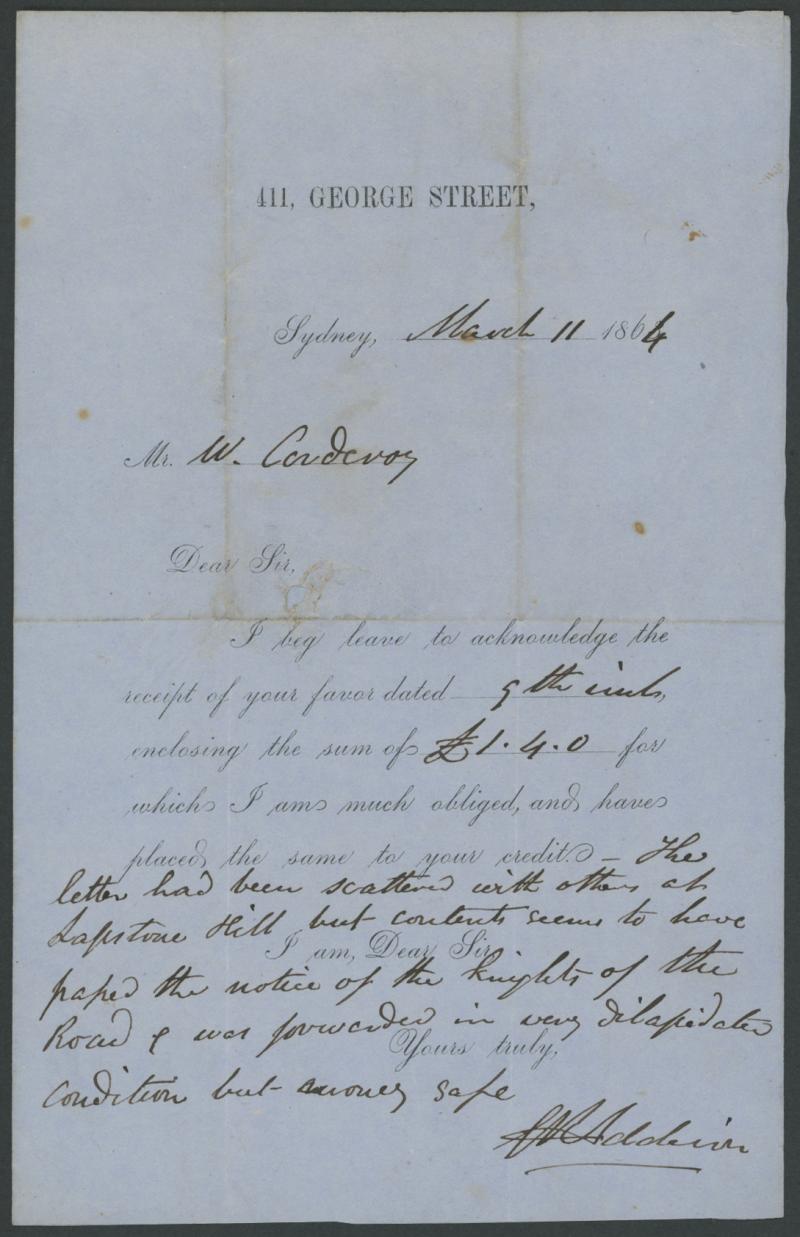 411, GEORGE STREET,
Sydney, March 11 1864
Mr. W. Corderoy
Dear Sir,
I beg leave to acknowledge the
receipt of your favor dated 9th inst,
enclosing the sum of £1.4.0 for
which I am much obliged, and have
placed the same to your credit. – The
letter had been scattered with others at
Lapstone Hill but contents seems to have
I am, Dear Sir,
paped the notice of the Knights of the
Road & was forwarded in very dilapidated
Yours truly,
condition but money safe
Addison